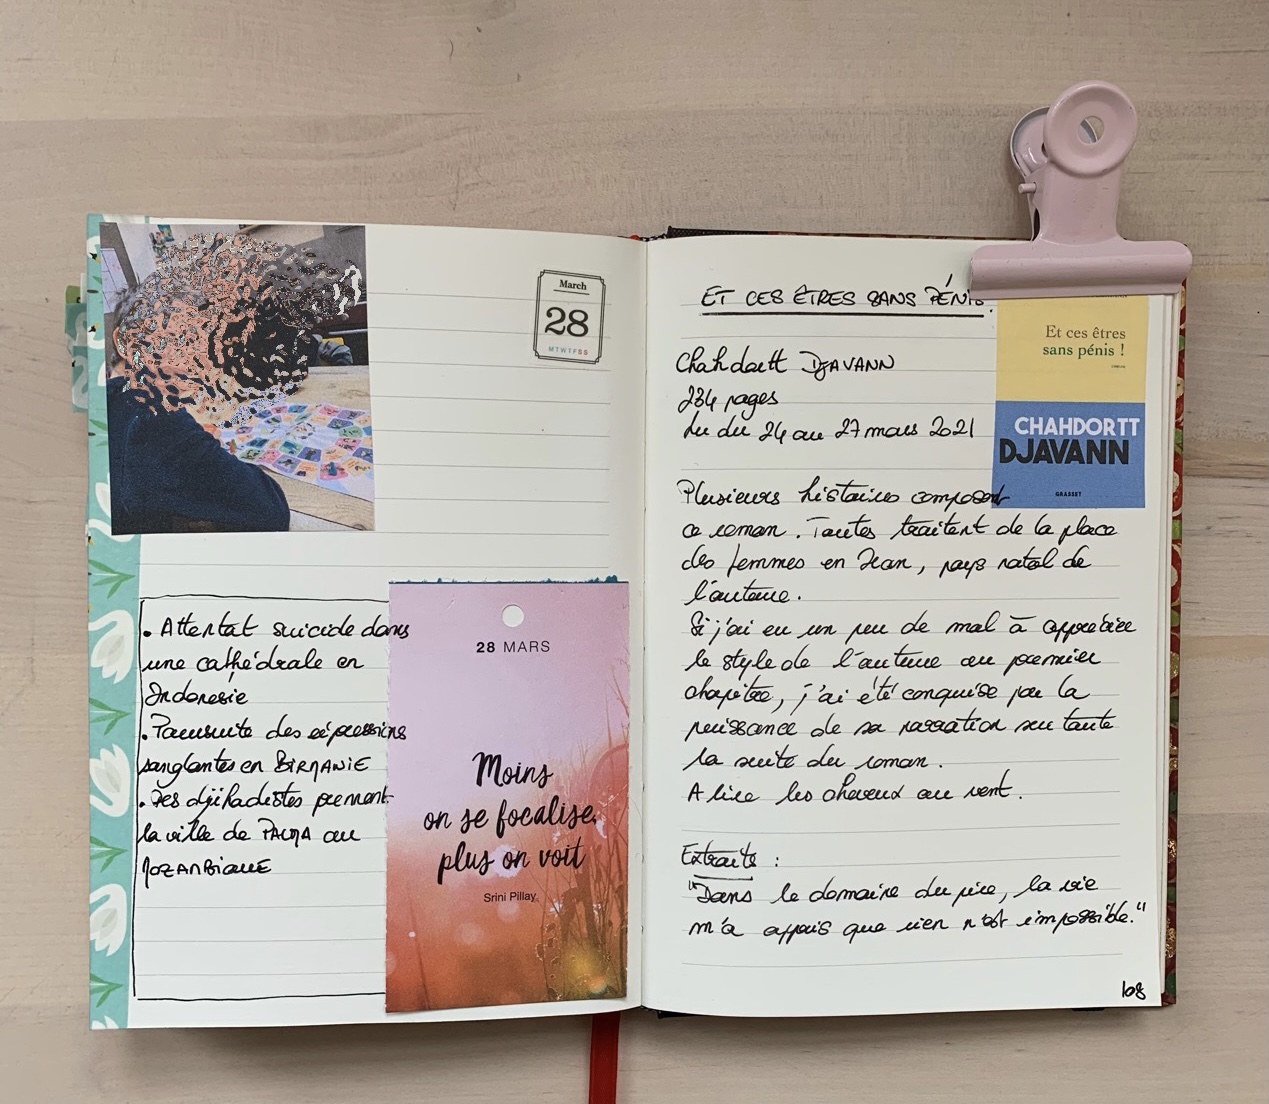 March
28
MTWTFSS
• Attentat suicide dans
une cathédrale en
Indonésie
• Poursuite des répressions
sanglantes en BIRMANIE
• Des djihadistes prennent
la ville de PALMA au
MOZAMBIQUE
28 MARS
Moins
on se focalise,
plus on voit
Srini Pillay
ET CES ÊTRES SANS PÉNIS
Chahdortt DJAVANN
234 pages
Lu du 24 au 27 mars 2021
Et ces êtres
sans pénis !
CHAHDORTT
DJAVANN
GRASSET
Plusieurs histoires composent
ce roman. Toutes traitent de la place
des femmes en Iran, pays natal de
l'auteure.
Si j'ai eu un peu de mal à apprécier
le style de l'auteure au premier
chapitre, j'ai été conquise par la
puissance de sa narration sur toute
la suite du roman.
A lire les cheveux au vent.
Extraits :
"Dans le domaine du pire, la vie
m'a appris que rien n'est impossible."
108